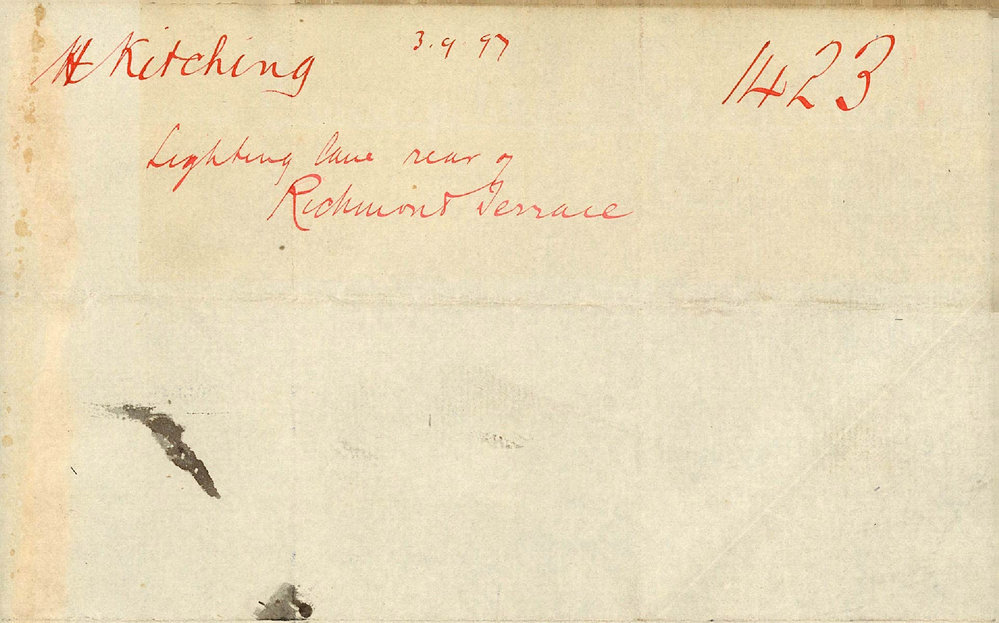 H Kitching 3.9.97 1423
Lighting lane rear of
Richmond Terrace